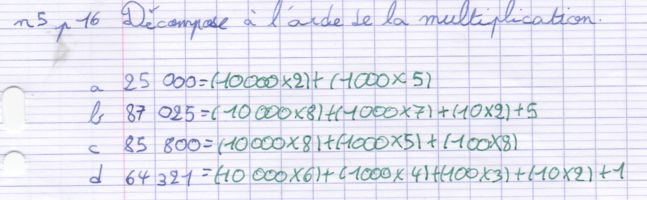 n5 p 16 Décompose à l'aide de la multiplication.
a 25 000=(10000×2)+(1000×5)
b 87 025=(10 000×8)+(1000×7)+(10×2)+5
c 85 800=(10000×8)+(1000×5)+(100×8)
d 64 321=(10 000×6)+(1000×4)+(100×3)+(10×2)+1